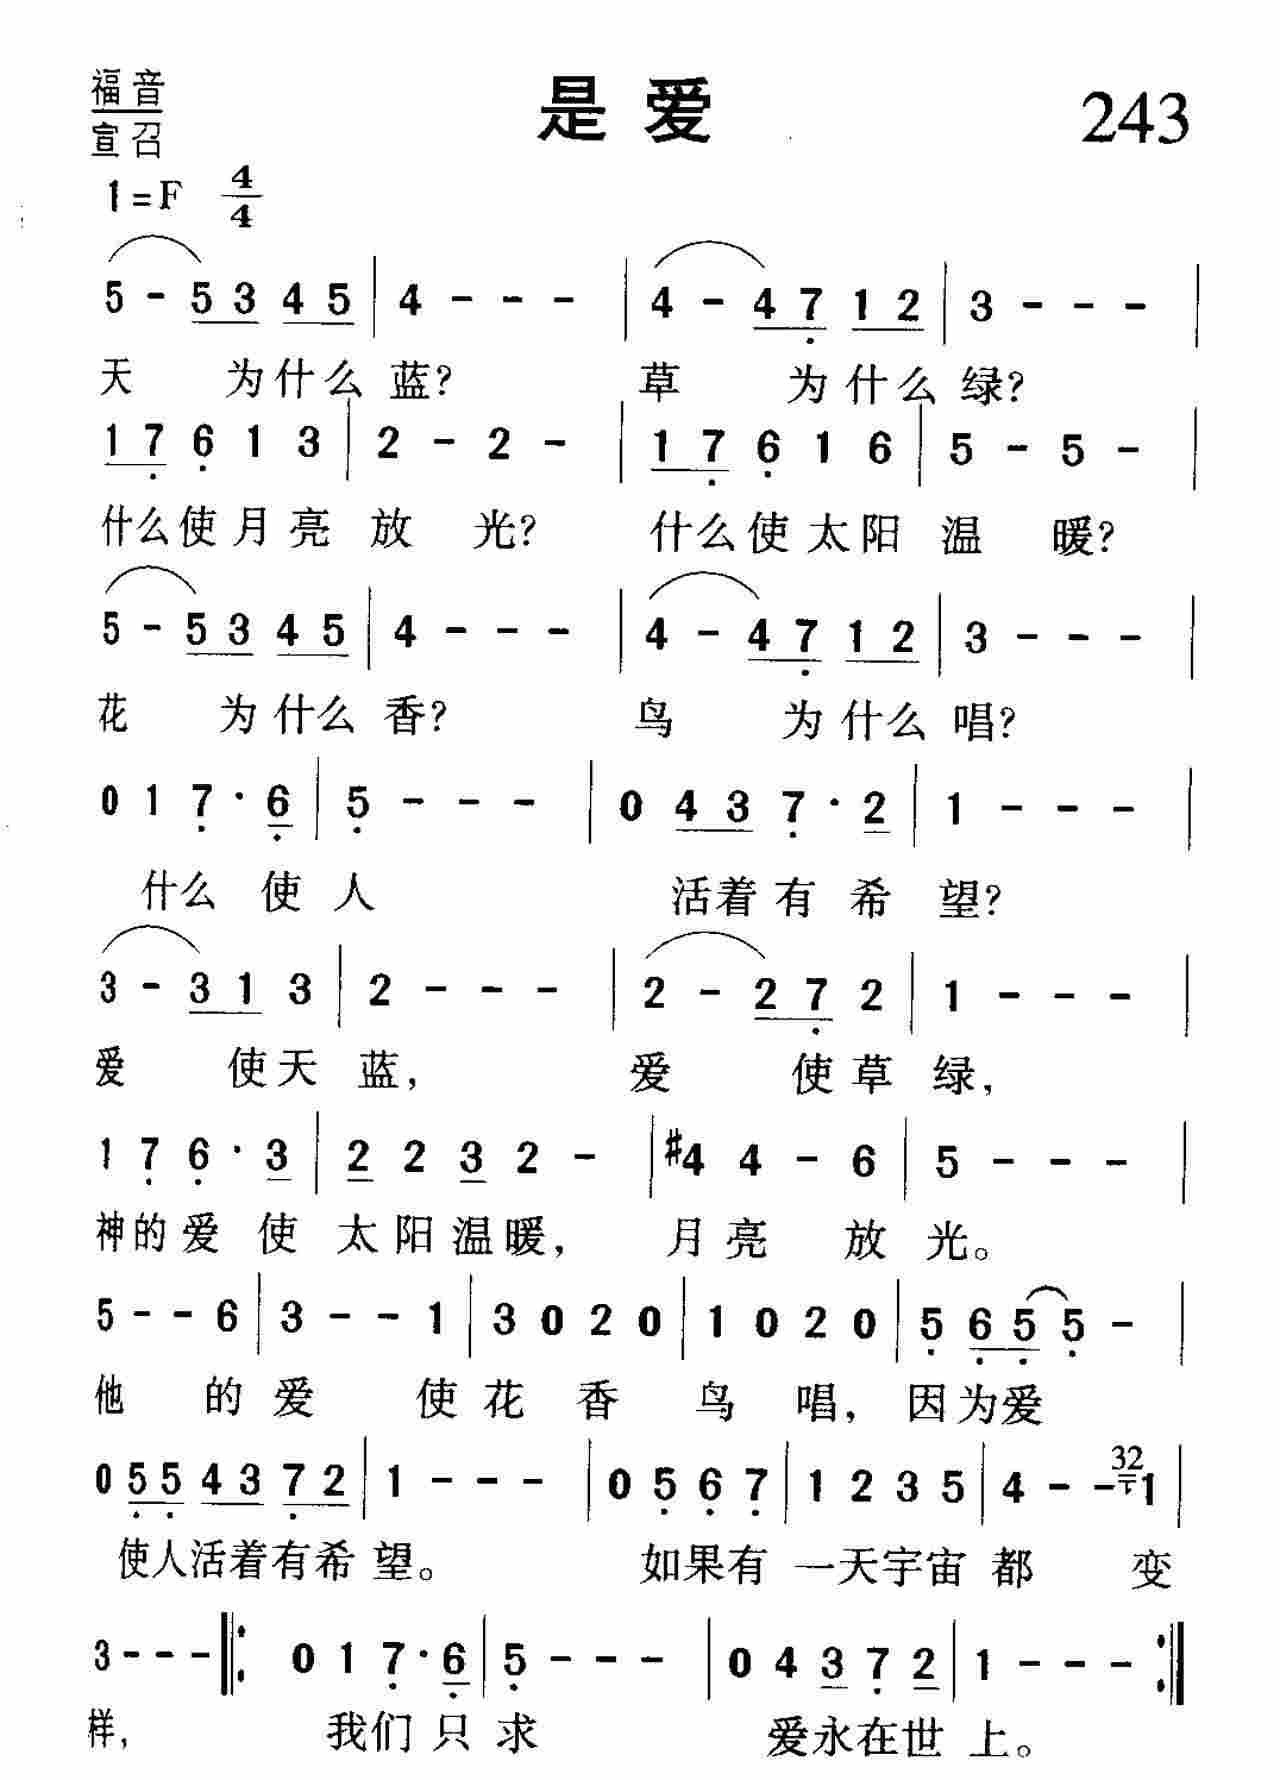 福音 是爱 243
宣召
1=F 4/4
5 - 5 3 4 5 | 4 - - - | 4 - 4 7̣ 1 2 | 3 - - - |
天 为什么 蓝? 草 为什么 绿?
1 7̣ 6̣ 1 3 | 2 - 2 - | 1 7̣ 6̣ 1 6 | 5 - 5 - |
什么使月亮 放 光? 什么使太阳 温 暖?
5 - 5 3 4 5 | 4 - - - | 4 - 4 7̣ 1 2 | 3 - - - |
花 为什么 香? 鸟 为什么 唱?
0 1 7̣ · 6̣ | 5̣ - - - | 0 4 3 7̣ · 2 | 1 - - - |
什么 使 人 活着有 希 望?
3 - 3 1 3 | 2 - - - | 2 - 2 7̣ 2 | 1 - - - |
爱 使天 蓝, 爱 使草 绿,
1 7̣ 6̣ · 3 | 2 2 3 2 - | #4 4 - 6 | 5 - - - |
神的爱 使 太阳温暖, 月亮 放 光。
5 - - 6 | 3 - - 1 | 3 0 2 0 | 1 0 2 0 | 5̣ 6̣ 5̣ 5̣ - |
他 的爱 使花 香 鸟 唱, 因为爱
0 5̣ 5̣ 4 3 7̣ 2 | 1 - - - | 0 5̣ 6̣ 7̣ | 1 2 3 5 | 4 - - 32 1 |
使人活着有希望。 如果有 一天宇宙 都 变
3 - - - ‖: 0 1 7̣ · 6̣ | 5̣ - - - | 0 4 3 7̣ 2 | 1 - - - :‖
样, 我们只 求 爱永在世 上。